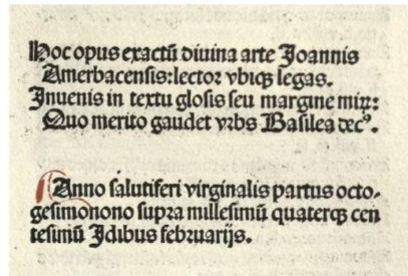 Hoc opus exactū diuina arte Joannis
Amerbacensis: lector vbiqꝫ legas.
Inuenis in textu glosis seu margine mirū:
Quo merito gaudet vrbs Basilea decꝰ.
Anno salutiferi virginalis partus octo-
gesimonono supra millesimū quaterqꝫ cen
tesimū Jdibus februarijs.